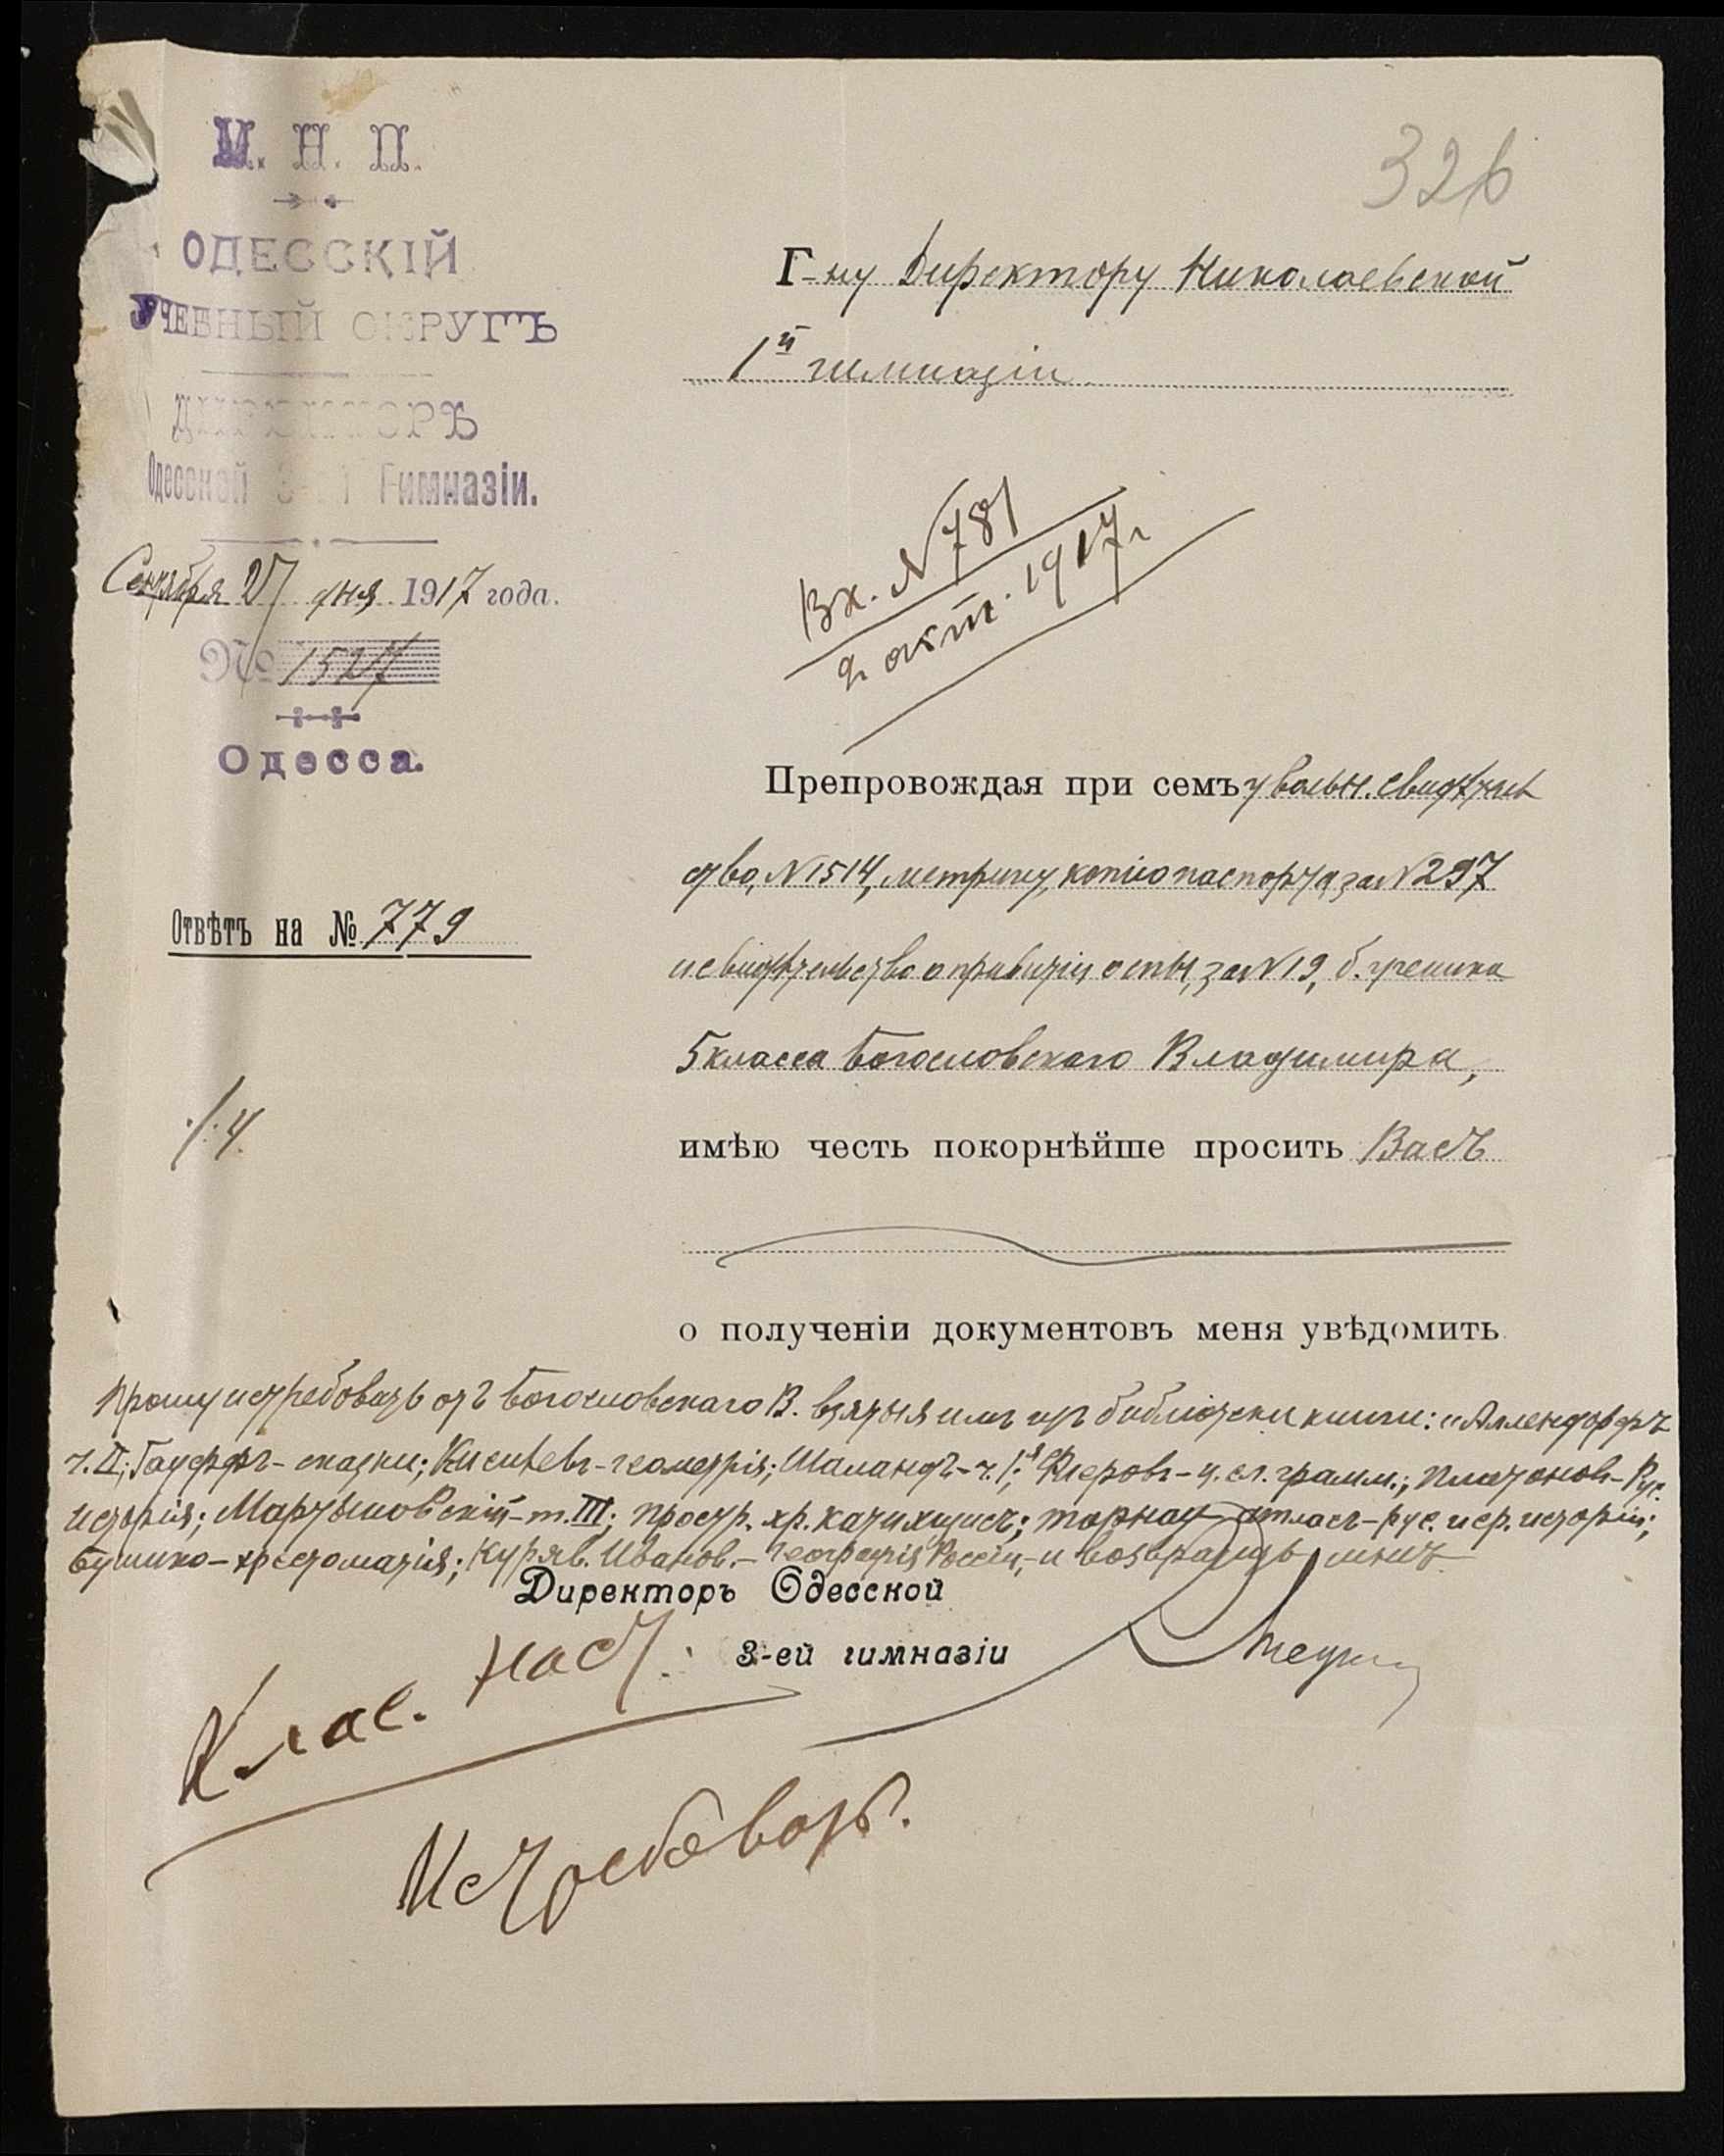 326
М. Н. П.
ОДЕССКІЙ
УЧЕБНЫЙ ОКРУГЪ
ДИРЕКТОРЪ
Одесской 3-й Гимназіи.
Сентября 27 дня 1917 года.
№ 1527
Одесса.
Г-ну Директору Николаевской
1й гимназіи
Вх. № 781
2 окт. 1917 г.
Отвѣтъ на № 779
Препровождая при семъ увольн. свидѣтель
ство, № 1514, метрику, копію паспорта за № 297
и свидѣтельство о привитіи оспы, за № 19, б. ученика
5 класса Богословскаго Владимира,
имѣю честь покорнѣйше просить Васъ
о полученіи документовъ меня увѣдомить
Прошу истребовать отъ Богословскаго В. взятыя имъ изъ библіотеки книги: "Аллендорфъ
ч. II; Гауффъ - сказки; Киселевъ - геометрія; Шаландъ - ч. 1;я Флеровъ - ц. сл. грамм.; Платоновъ - Рус.
Исторія; Мартыновскій - т. III; простр. хр. катихизисъ; торнау атласъ - рус. и ср. исторіи;
Бушико - хрестоматія; Куряв. Иванов. - географія Россіи, и возвратить мнѣ.
Директоръ Одесской
3-ей гимназіи
Клас. наст.
Истребовать.